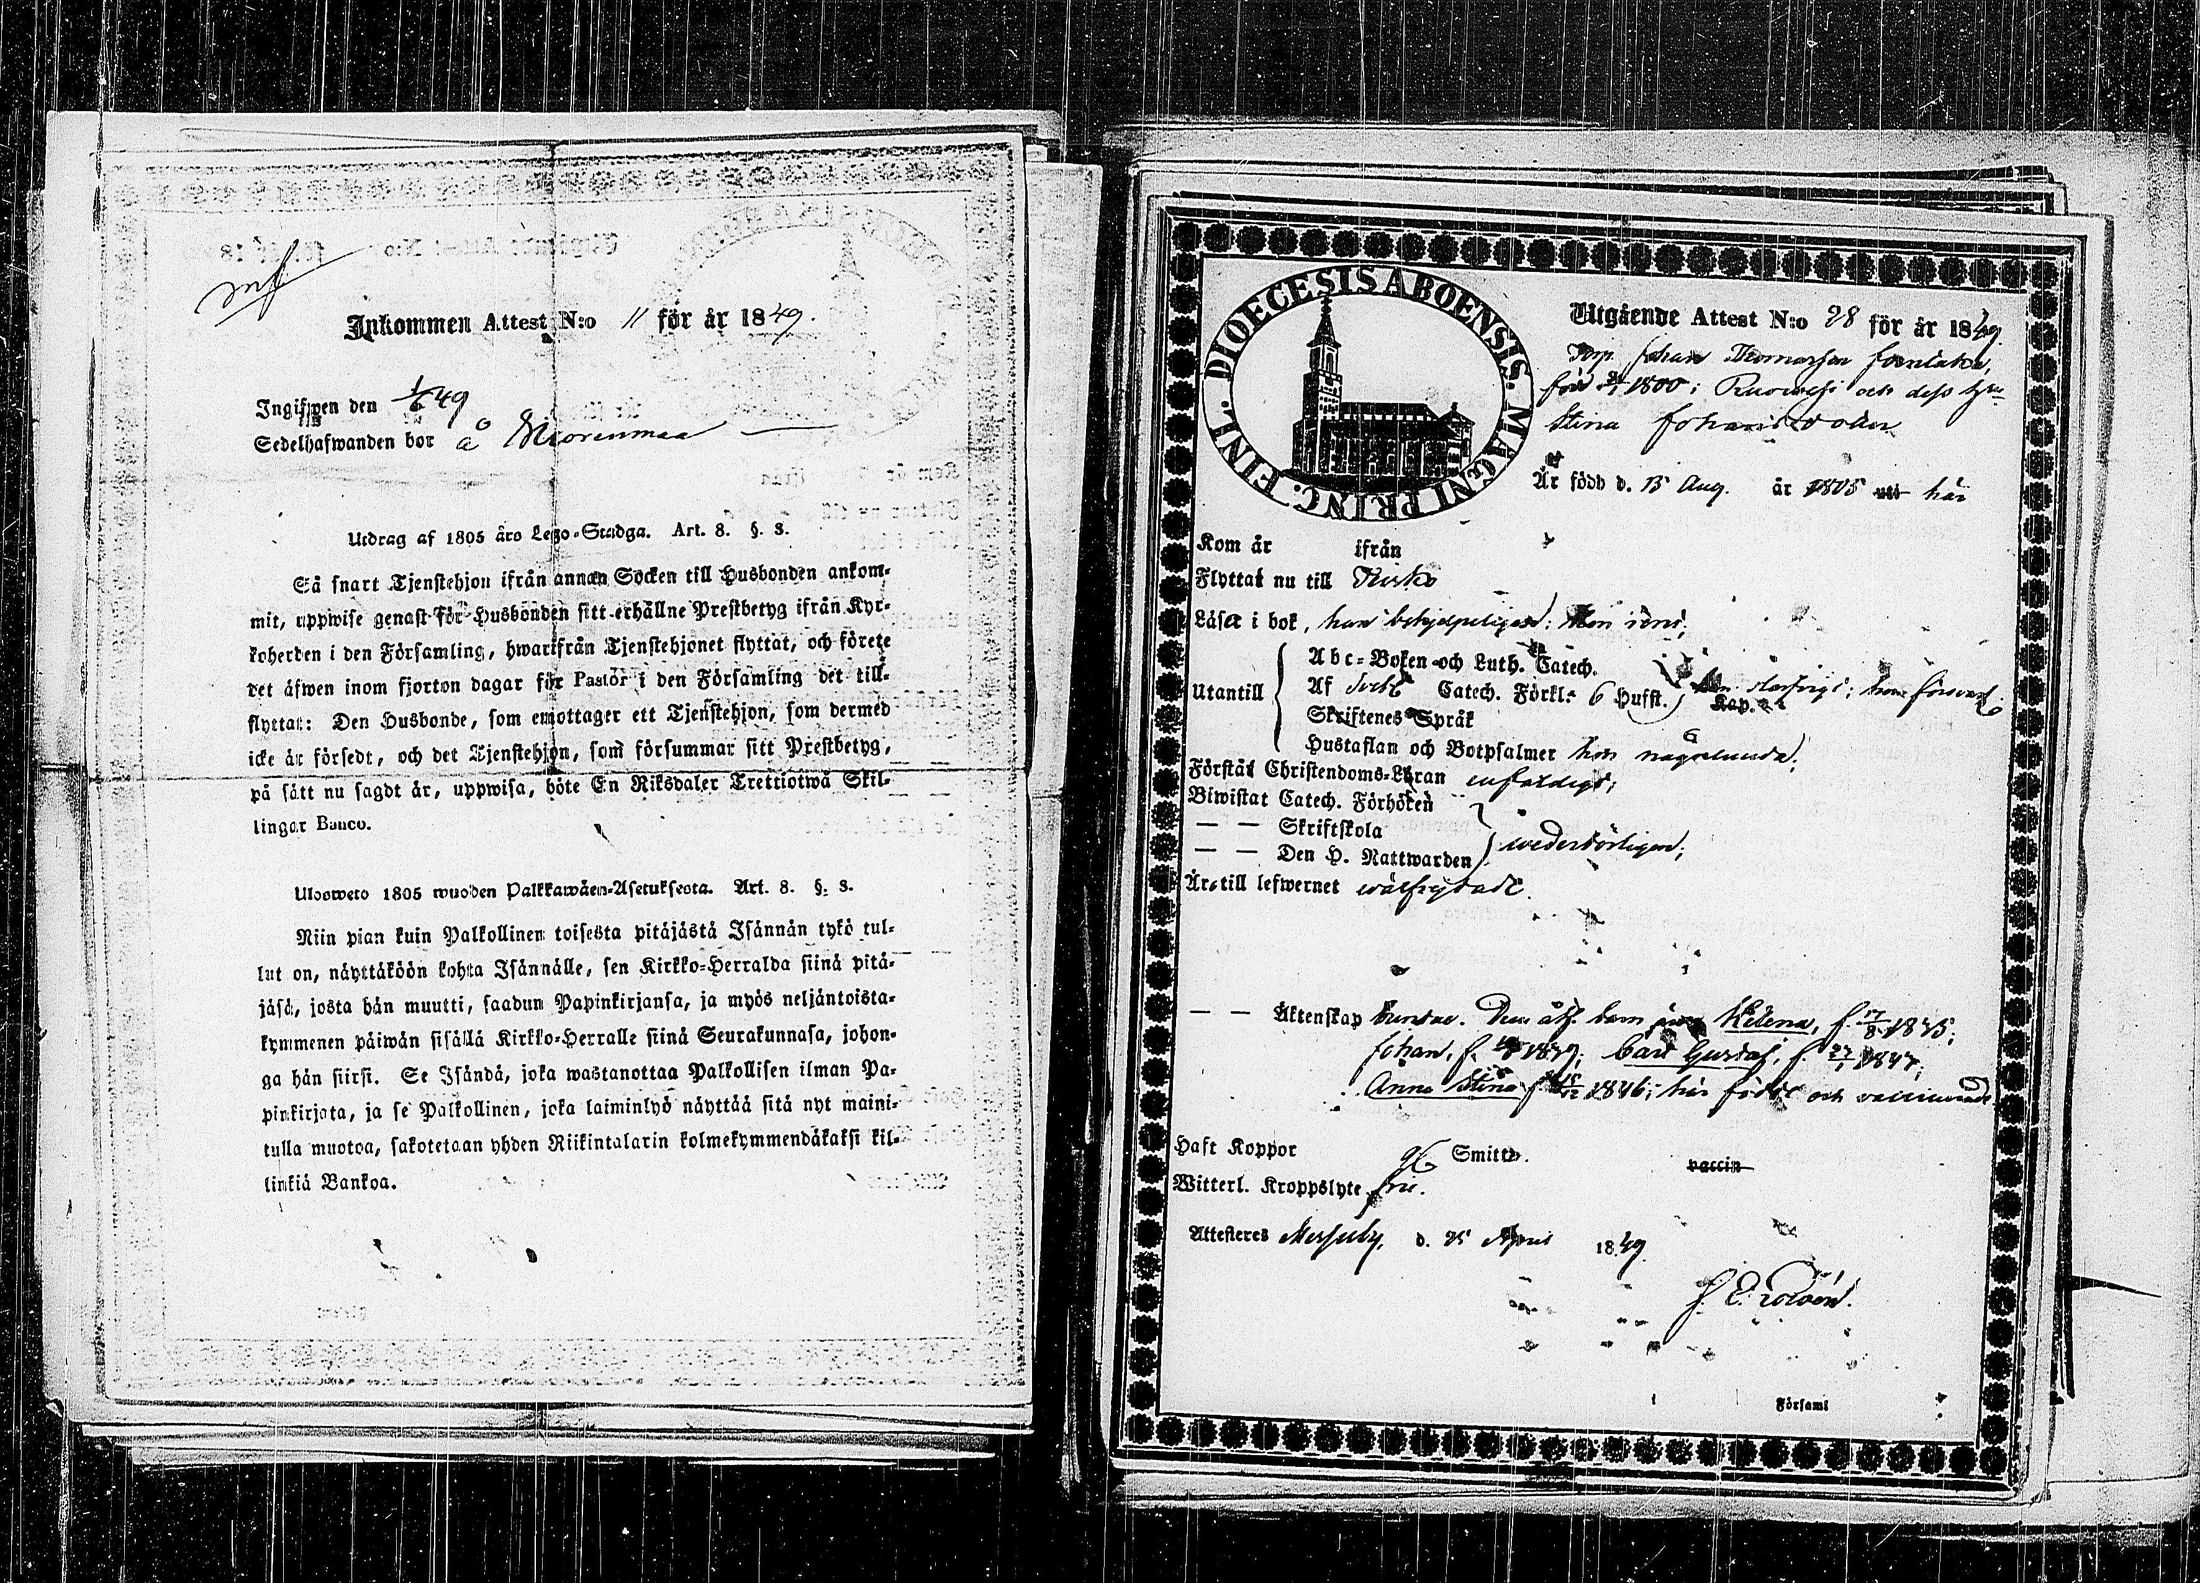 Inkommen Attest N:o 11 för år 1849.
Ingifwen den 1/6 49
Sedelhafwanden bor å Wuorenmaa
Utdrag af 1805 års Lego-Stadga. Art. 8. §. 8.
Så snart Tjenstehjon ifrån annan Socken till Husbonden ankom-
mit, uppwise genast för Husbonden sitt erhållne Prestbetyg ifrån Kyr-
koherden i den Församling, hwarifrån Tjenstehjonet flyttat, och förete
det äfwen inom fjorton dagar för Pastor i den Församling det till-
flyttat: Den Husbonde, som emottager ett Tjenstehjon, som dermed
icke är försedt, och det Tjenstehjon, som försummar sitt Prestbetyg,
på sätt nu sagdt är, uppwisa, böte En Riksdaler Trettiotwå Skil-
lingar Banco.
Ulosweto 1805 wuoden Palkkawäen-Asetuksesta. Art. 8. §. 8.
Niin pian kuin Palkollinen toisesta pitäjästä Isännän tykö tul-
lut on, näyttäköön kohta Isännälle, sen Kirkko-Herralda siinä pitä-
jäsä, josta hän muutti, saadun Papinkirjansa, ja myös neljäntoista-
kymmenen päiwän sisällä Kirkko-Herralle siinä Seurakunnasa, johon-
ga hän siirsi. Se Isändä, joka wastanottaa Palkollisen ilman Pa-
pinkirjata, ja se Palkollinen, joka laiminlyö näyttää sitä nyt maini-
tulla muotoa, sakotetaan yhden Riikintalarin kolmekymmendäkaksi kil-
linkiä Bankoa.
DIOECESIS ABOENSIS. MAGNI PRINC. FINL.
Utgående Attest N:o 28 för år 1849
Torp. Johan Thomasson
född 1800 i Ruovesi och dess hstru
Stina Johansdoter
Är född d. 15 Aug. år 1805 här
Kom år ifrån
Flyttat nu till Kisko
Läsa i bok, han behjelpeligen; hon rent;
Utantill
Abc-Boken och Luth. Catech.
Af Sveb. Catech. Förkl. 6 Hufst. Kap.
Skriftenes Språk
Hustaflan och Botpsalmer hon någorlunda;
Förstår Christendoms-Läran enfaldigt;
Biwistat Catech. Förhören
— — Skriftskola
— — Den H. Nattwarden wederbörligen;
Är till lefwernet wälfrejdade
— — Äktenskap bundne. Deras barn Helena, f. 17/8 1835;
Johan, f. 1839; Carl Gustaf, f. 1844;
Anna Stina f. 1846; här födde och vaccinerade
Haft Koppor Smitto. vaccin
Witterl. Kroppslyte frie.
Attesteres Merjerby, d. 25 April 1849.
Församl